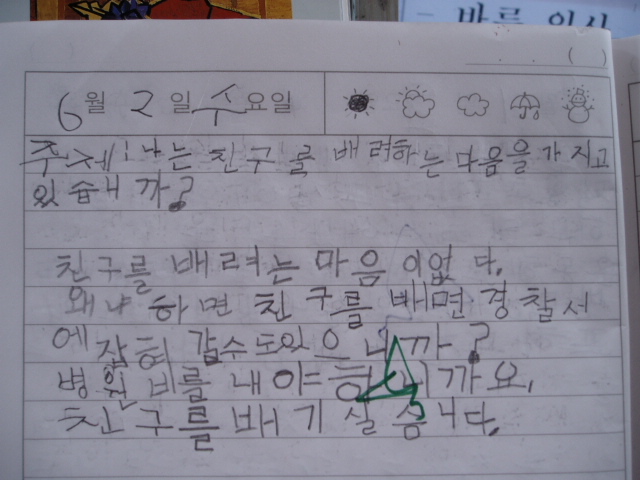 바른 인사
( )
6월 2일 수요일
주제:나는 친구를 배려하는 마음을 가지고
있습니까?
친구를 배려는 마음이없다.
왜냐하면 친구를 배면경찰서
에 잡혀 갈수도있으니까?
병원비를 내야 하니까요.
친구를 배기 실습니다.